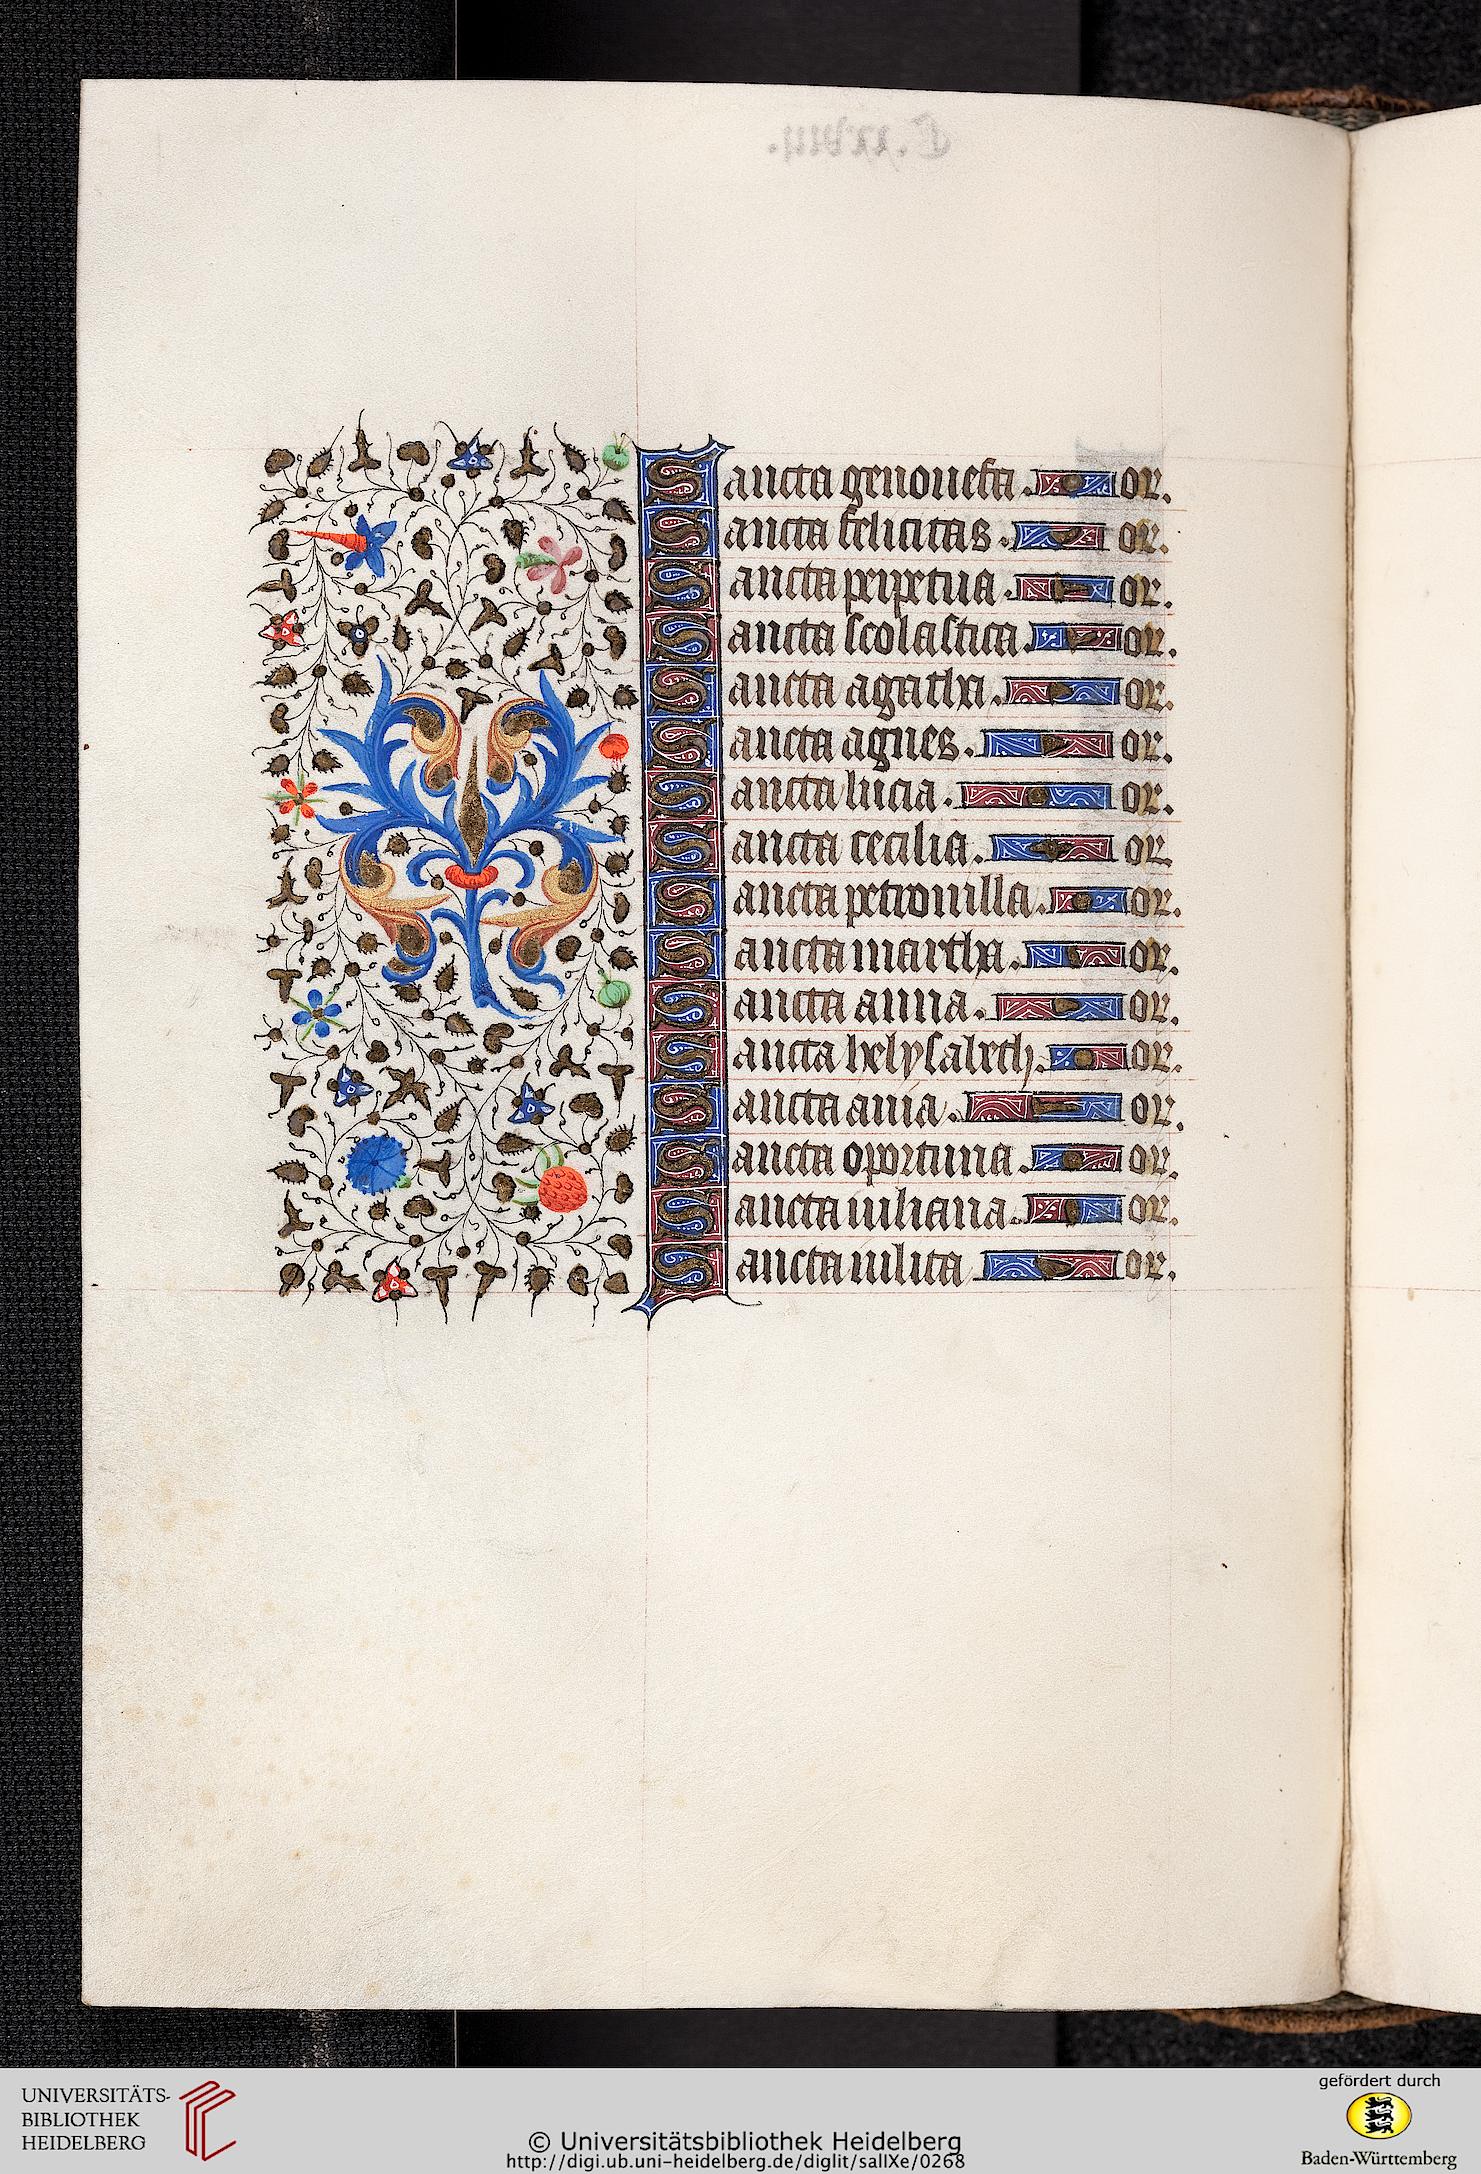 Sancta genouefa. or.
Sancta felicitas. or.
Sancta perpetua. or.
Sancta scolastica. or.
Sancta agatha. or.
Sancta agnes. or.
Sancta lucia. or.
Sancta cecilia. or.
Sancta petronilla. or.
Sancta martha. or.
Sancta anna. or.
Sancta helysabeth. or.
Sancta auia. or.
Sancta oportuna. or.
Sancta iuliana. or.
Sancta iulita or.
UNIVERSITÄTS-
BIBLIOTHEK
HEIDELBERG
© Universitätsbibliothek Heidelberg
http://digi.ub.uni-heidelberg.de/diglit/salIXe/0268
gefördert durch
Baden-Württemberg